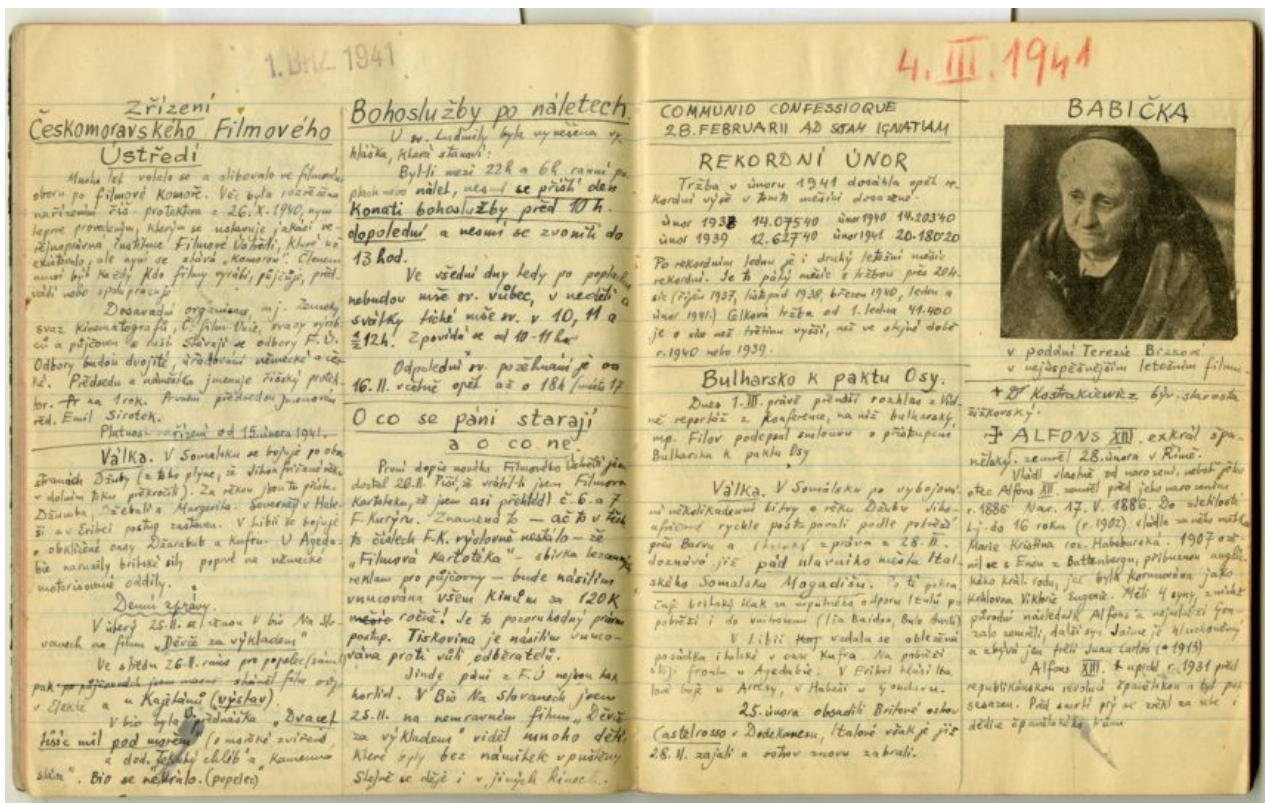 1. BŘZ. 1941
Zřízení
Českomoravského Filmového
Ústředí
Mnoho let volalo se a slibovalo ve filmovém
oboru po filmové Komoře. Věc byla rozřešena
nařízením říš. protektora z 26. X. 1940, nyní
teprve provedeným, kterým se ustavuje jakási ve-
řejnoprávná instituce Filmové Ústředí, které
existovalo, ale nyní se stává „Komorou". Členem
musí být každý kdo filmy vyrábí, půjčuje, před-
vádí nebo spolupracuje.
Dosavadní organisace, mj. Zemský
svaz kinematografů, svazy výrob-
ců a půjčoven stávají se odbory F.Ú.
Odbory budou dvojité, úřadování německé a čes-
ké. Předsedu a náměstka jmenuje říšský protek-
tor na 1 rok. Prvním předsedou jmenován
red. Emil Sirotek.
Platnost nařízení od 15. února 1941.
Válka. V Somálsku se bojuje po obou
stranách Džuby (z toho plyne, že Jihoafričané řeku
v dolním toku překročili). Za řekou jsou to přísta-
Džumba, Džebali a Margerita. Severněji v Habe-
ši a v Eritrei postup zastaven. V Libii se bojuje
o obklíčené oasy Džarabub a Kufru. U Ageda-
bie narazily britské síly poprvé na německé
motorisované oddíly.
Denní zprávy.
V úterý 25.II. se ženou v bio Na Slo-
vanech na film „Děvče za výkladem"
Ve středu 26.II. ráno pro popelec
pak po půjčovnách jsem sháněl film
v Elekte a u Kajetánů (výstav).
V bio byla přednáška „Dvacet
tisíc mil pod mořem" (o mořské zvířeně
a dod. chléb a „Kamenná
sláva". Bio se nehrálo. (popelec)
Bohoslužby po náletech
U sv. Ludmily byla vyvěšena vy-
hláška, která stanoví:
Byl-li mezi 22h a 6h ranní po-
plach nebo nálet, nesmí se příští den
konati bohoslužby před 10 h.
dopolední a nesmí se zvoniti do
13 hod.
Ve všední dny tedy po poplachu
nebudou mše sv. vůbec, v neděli a
svátky tiché mše sv. v 10, 11 a
½12h. Zpovídá se od 10-11 h.
Odpolední sv. požehnání je od
16. II. včetně opět až o 18h (místo 17
O co se páni starají
a o co ne
První dopis nového Filmového Ústředí jsem
dostal 20.II. Píší, že vrátil-li jsem Filmovou
Kartoteku, že jsem asi přehlédl č. 6 a 7
F. Kurýru. Znamená to — ač to v těch-
to číslech F.K. výslovně nestálo — že
„Filmová Kartotéka" — sbírka bezcenných
reklam pro půjčovny — bude násilím
vnucována všem kinům za 120K
ročně! Je to pozoruhodný právní
postup. Tiskovina je násilím vnuco-
vána proti vůli odběratelů.
Jinde páni z F.Ú nejsou tak
horliví. V Bio Na Slovanech jsem
25.II. na nemravném filmu „Děvče
za výkladem" viděl mnoho dětí,
které byly bez námitek vpuštěny
Stejně se děje i v jiných kinech.
4. III. 1941
COMMUNIO CONFESSIOQUE
28. FEBRUARII AD STAM IGNATIAM
REKORDNÍ ÚNOR
Tržba v únoru 1941 dosáhla opět re-
kordní výše v tomto měsíci dosažené.
únor 1938 14.07540 únor 1940 14.20340
únor 1939 12.62740 únor 1941 20.18020
Po rekordním lednu je i druhý letošní měsíc
rekordní. Je to pátý měsíc s tržbou přes 20 ti-
síc (říjen 1937, listopad 1938, březen 1940, leden a
únor 1941.) Celková tržba od 1. ledna 41.400
je o více než třetinu vyšší, než ve stejné době
r. 1940 nebo 1939.
Bulharsko k paktu Osy.
Dnes 1. III. právě přenáší rozhlas z Víd-
ně reportáž z Konference, na níž bulharský
mp. Filov podepsal smlouvu o přistoupení
Bulharska k paktu Osy
Válka. V Somálsku po vybojová-
ní několikadenní bitvy o řeku Džubu Jiho-
afričané rychle postupovali podle pobřeží
přes Barvu a italská zpráva z 28. II.
doznává již pád hlavního města Ital-
ského Somálska Mogadišu.
pobřeží i do vnitrozemí
V Libii vzdala se obležená
posádka italská v oase Kufra. Na pobřeží
stojí fronta u Agedabie. V Eritrei hlásí Ita-
lové boje u Arresy, v Habeši u Gondaru.
25. února obsadili Britové ostrov
Castelrosso v Dodekanesu, Italové však je již
28. II. zajali a ostrov znovu zabrali.
BABIČKA
v podání Terezie Brzkové
v nejúspěšnějším letošním filmu.
+ Dr Kostrakiewicz býv. starosta
žižkovský.
ALFONS XIII. exkrál špa-
nělský zemřel 28. února v Římě.
Vládl vlastně od narození, neboť jeho
otec Alfons XII. zemřel před jeho narozením
r. 1885 Nar. 17. V. 1886. Do zletilosti
tj. do 16 roku (r. 1902) vládla za něho matka
Marie Kristina roz. Habsburská. 1907 ože-
nil se s Enou z Battenbergu, příbuznou anglic-
kého král. rodu, jež byla korunována jako
Královna Viktorie Eugenie. Měli 4 syny, z nichž
původní následník Alfons a nejmladší Gon-
zalo zemřeli, další syn Jaime je hluchoněmý
a zbývá jen třetí Juan Carlos (* 1913)
Alfons XIII. uprchl r. 1931 před
republikánskou revolucí španělskou a byl pak
sesazen. Před smrtí prý se zřekl za sebe i
dědice španělského trůnu.